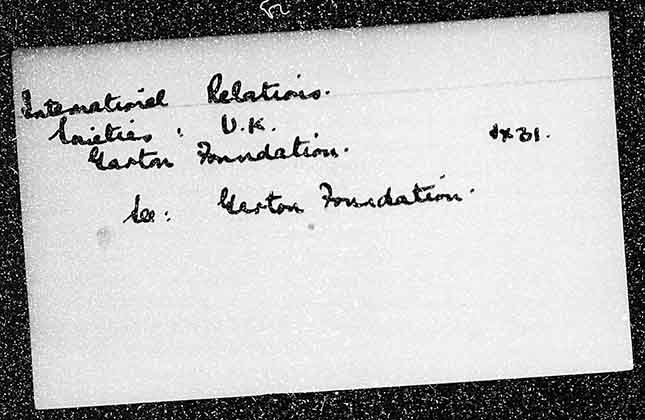 International Relations.
Societies : U.K.
Garton Foundation.
See : Garton Foundation.